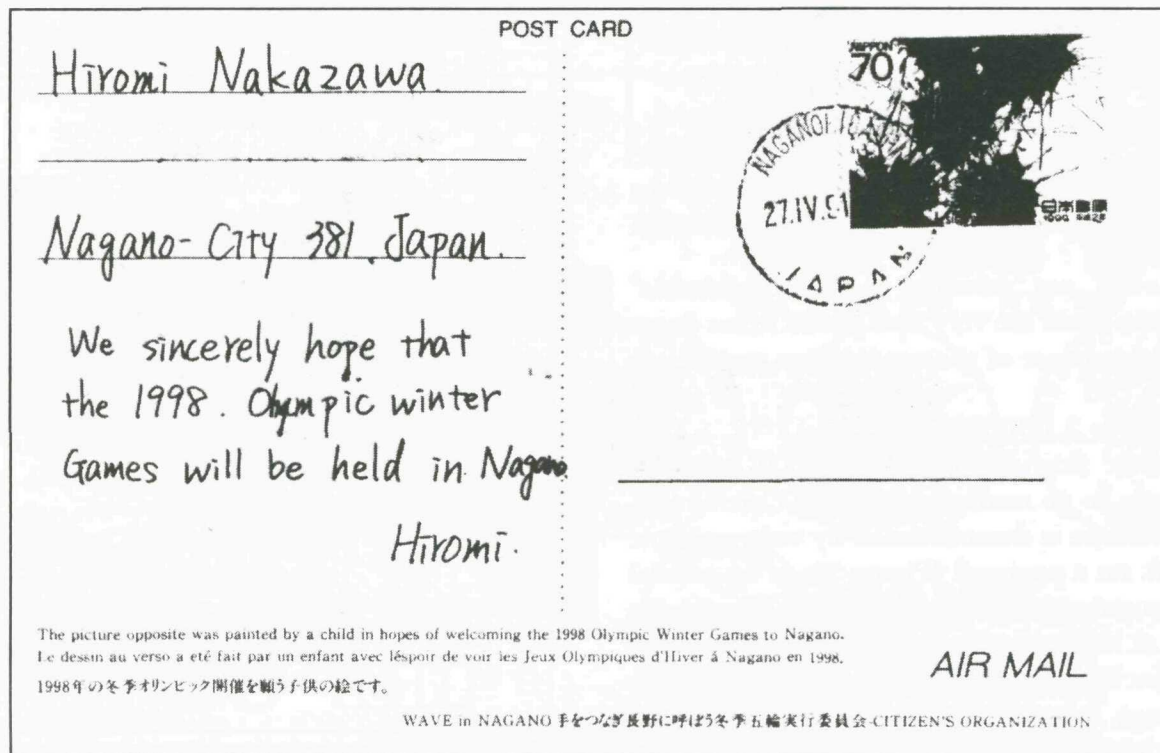 POST CARD
Hiromi Nakazawa.
Nagano-City 381, Japan.
We sincerely hope that
the 1998. Olympic winter
Games will be held in Nagano
Hiromi.
NIPPON
70
NAGANO
27.IV.91
JAPAN
日本郵便
1990 平成2年
The picture opposite was painted by a child in hopes of welcoming the 1998 Olympic Winter Games to Nagano.
Le dessin au verso a eté fait par un enfant avec léspoir de voir les Jeux Olympiques d'Hiver á Nagano en 1998.
1998年の冬季オリンピック開催を願う子供の絵です。
AIR MAIL
WAVE in NAGANO 手をつなぎ長野に呼ぼう冬季五輪実行委員会-CITIZEN'S ORGANIZATION